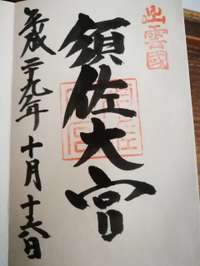 出雲國
須佐大宮
平成二十九年十月十六日